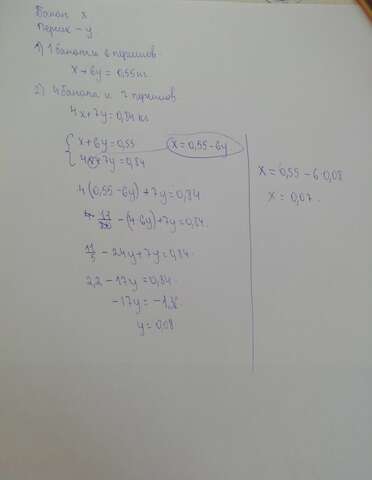 Банан x
Персик - y
1) 1 банан и 6 персиков.
x + 6y = 0,55 кг
2) 4 банана и 7 персиков
4x + 7y = 0,84 кг
x + 6y = 0,55
x = 0,55 - 6y
4x + 7y = 0,84
4(0,55 - 6y) + 7y = 0,84
- (4·6y) + 7y = 0,84.
11/5 - 24y + 7y = 0,84.
2,2 - 17y = 0,84.
-17y = -1,36
y = 0,08
x = 0,55 - 6·0,08
x = 0,07.